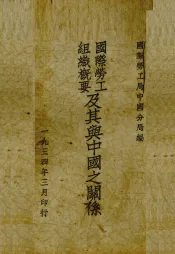 國際勞工局中國分局編
國際勞工
組織概要
及其與中國之關係
一九三四年三月印行